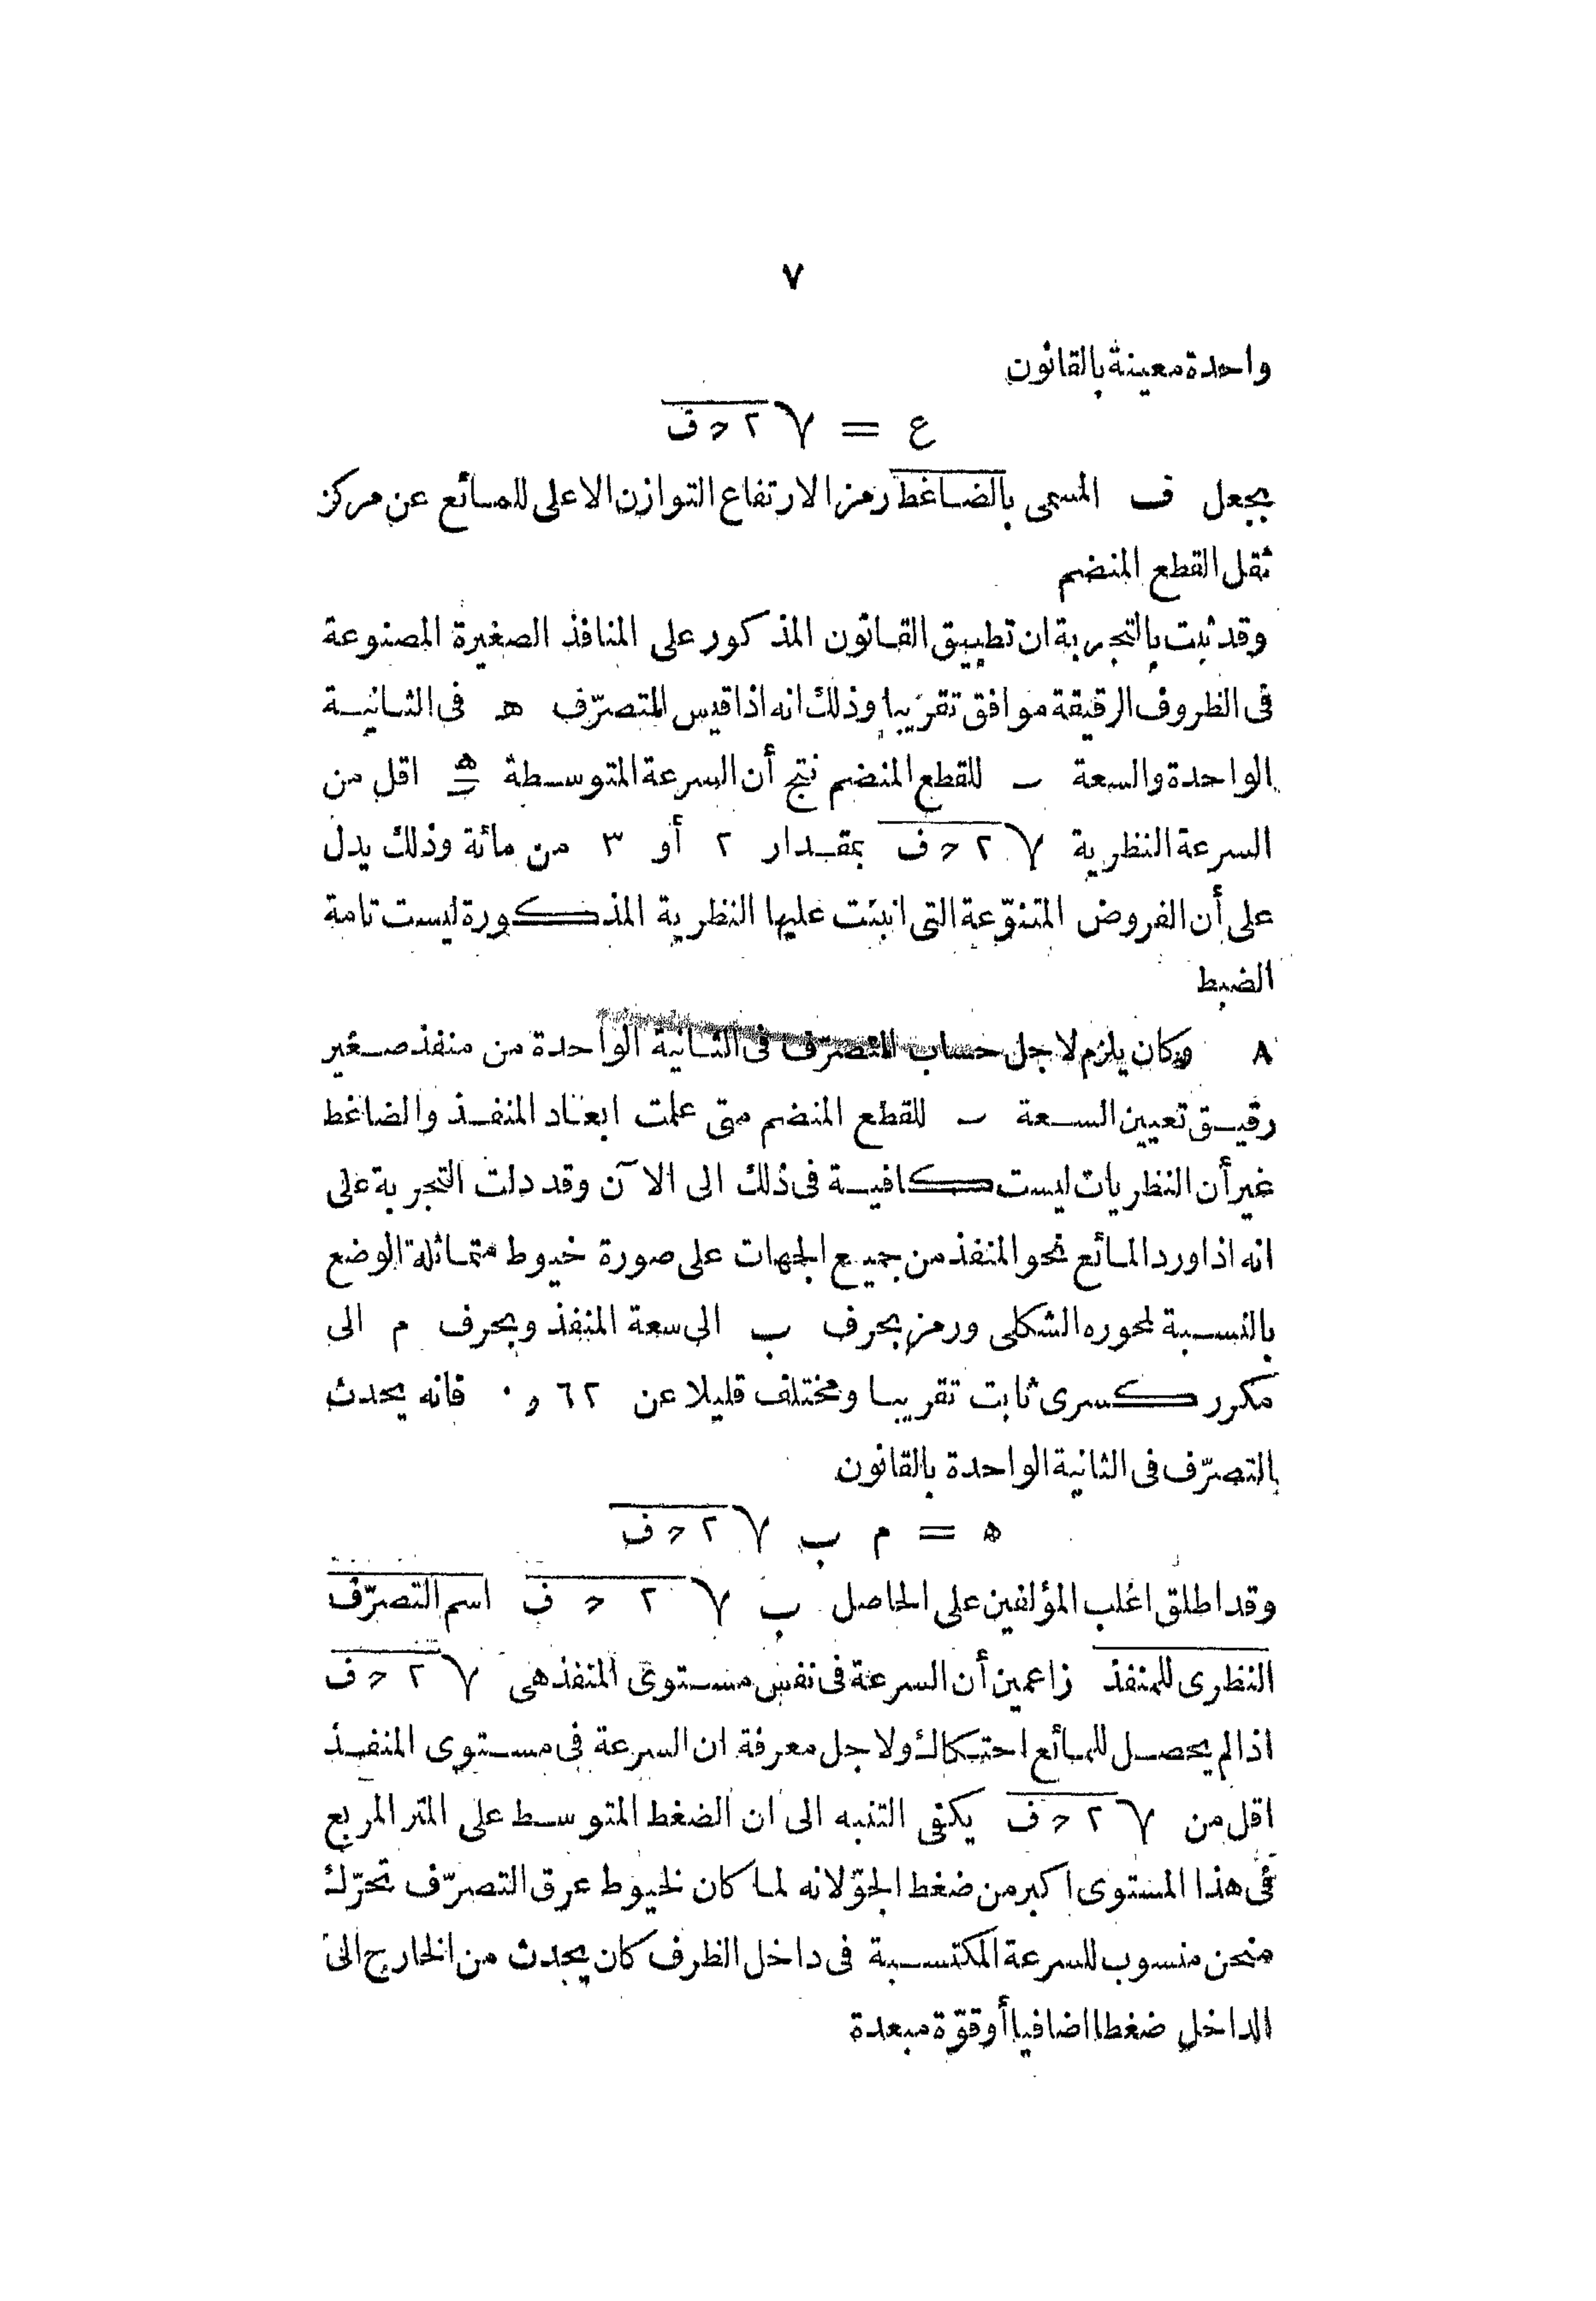 ٧
واحدة معينة بالقانون
ع = √٢ح ف
بجعل ف المسمى بالضاغط رمز الارتفاع التوازن الاعلى للمائع عن مركز
ثقل القطع المنضم
وقد ثبت بالتجربة ان تطبيق القانون المذكور على المنافذ الصغيرة المصنوعة
فى الظروف الرقيقة موافق تقريبا وذلك انه اذا قيس المتصرّف ه فى الثانية
الواحدة والسعة ب للقطع المنضم نتج أن السرعة المتوسطة ه/ب اقل من
السرعة النظرية √٢ح ف بمقدار ٢ أو ٣ من مائة وذلك يدل
على أن الفروض المتنوّعة التى انبنت عليها النظرية المذكورة ليست تامة
الضبط
٨ وكان يلزم لاجل حساب المتصرّف فى الثانية الواحدة من منفذ صغير
رقيق تعيين السعة ب للقطع المنضم متى علمت ابعاد المنفذ والضاغط
غير أن النظريات ليست كافية فى ذلك الى الآن وقد دلت التجربة على
انه اذا ورد المائع نحو المنفذ من جميع الجهات على صورة خيوط متماثلة الوضع
بالنسبة لمحوره الشكلى ورمز بحرف ب الى سعة المنفذ وبحرف م الى
مكرر كسرى ثابت تقريبا ومختلف قليلا عن ٦٢ و ٠ فانه يحدث
التصرّف فى الثانية الواحدة بالقانون
ه = م ب √٢ح ف
وقد اطلق اغلب المؤلفين على الحاصل ب √٢ ح ف اسم التصرّف
النظرى للمنفذ زاعمين أن السرعة فى نفس مستوى المنفذ هى √٢ح ف
اذا لم يحصل للمائع احتكاك ولاجل معرفة ان السرعة فى مستوى المنفذ
اقل من √٢ح ف يكفى التنبه الى ان الضغط المتوسط على المتر المربع
فى هذا المستوى اكبر من ضغط الجوّ لانه لما كان لخيوط عرق التصرّف تحرّك
منحن منسوب للسرعة المكتسبة فى داخل الظرف كان يحدث من الخارج الى
الداخل ضغطا اضافيا أو قوّة مبعدة